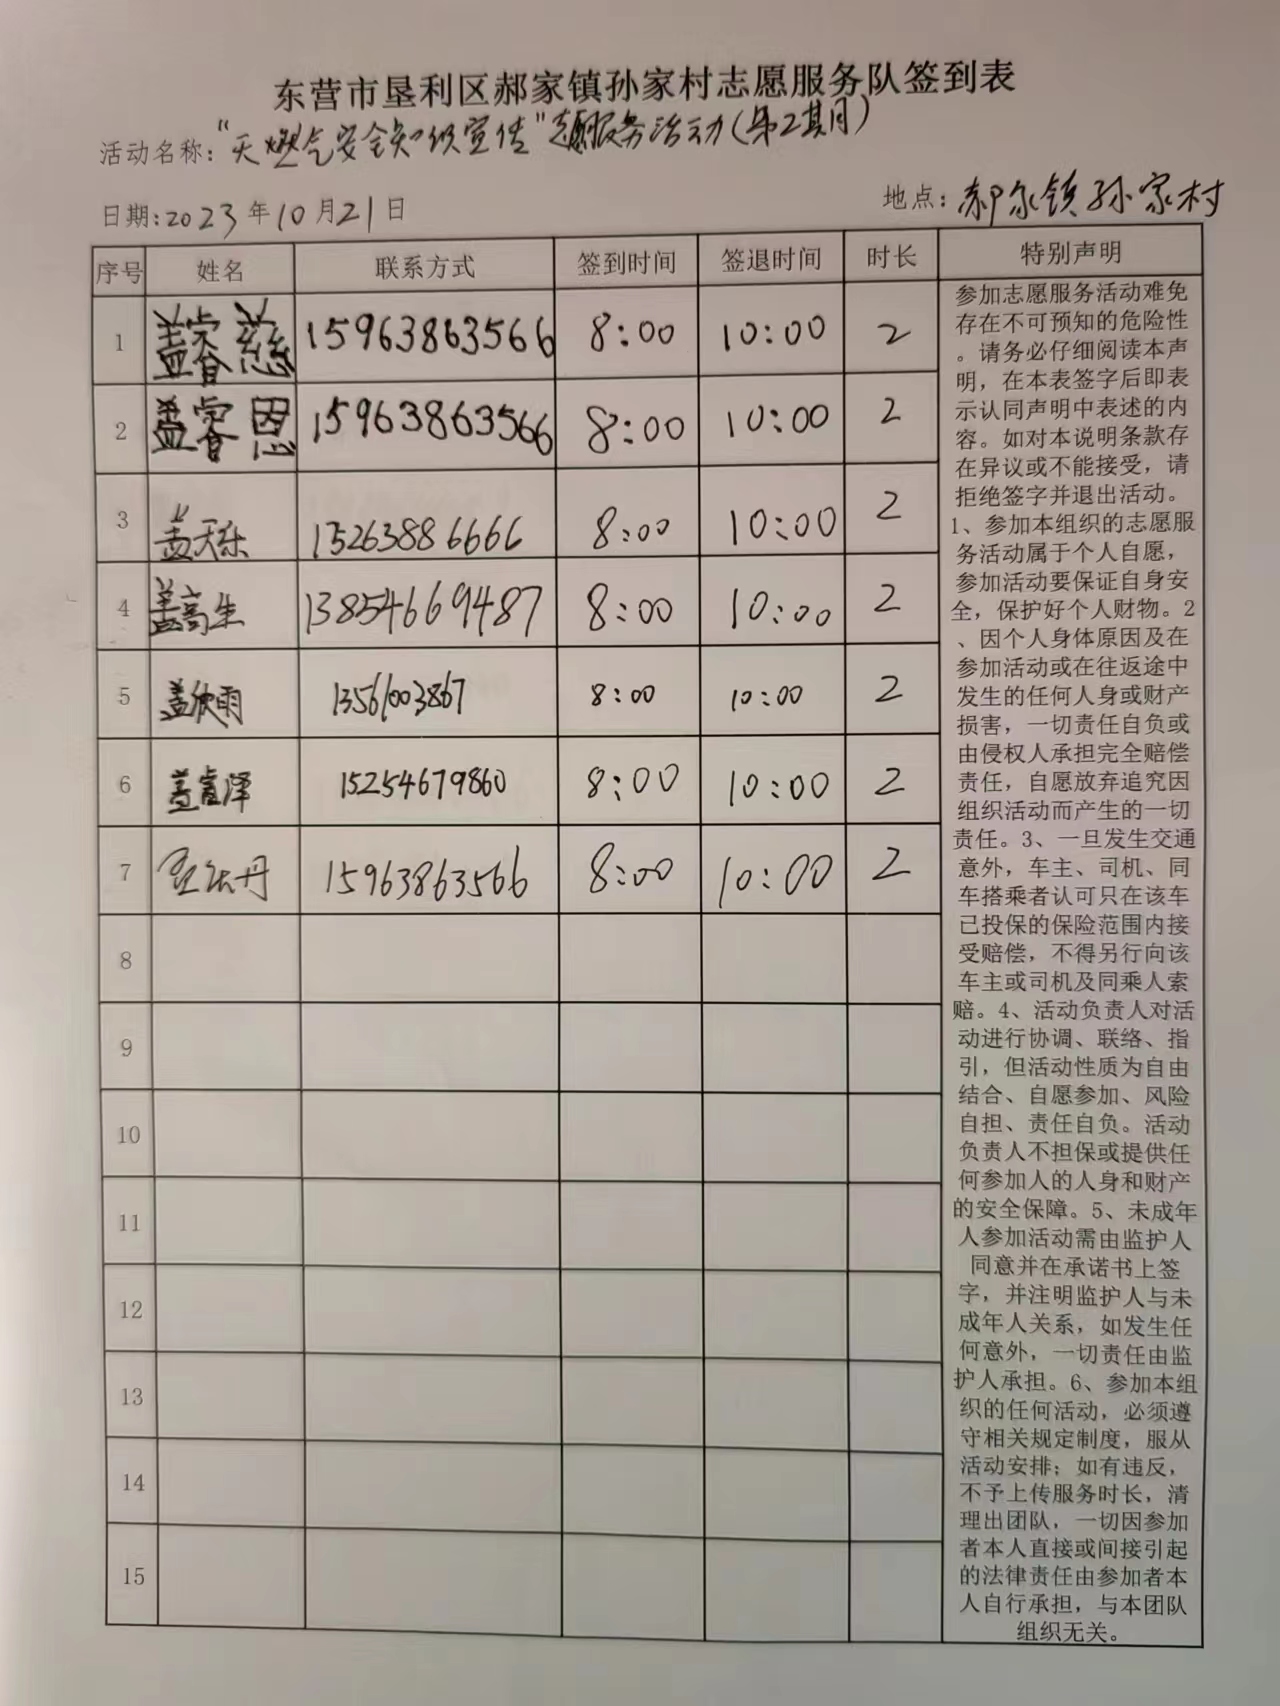 东营市垦利区郝家镇孙家村志愿服务队签到表
活动名称：“天燃气安全知识宣传”志愿服务活动（第2期）
日期：2023年10月21日
地点：郝家镇孙家村
序号 姓名 联系方式 签到时间 签退时间 时长 特别声明
1 盖睿慈 15963863566 8:00 10:00 2
2 盖睿恩 15963863566 8:00 10:00 2
3 盖天乐 15263886666 8:00 10:00 2
4 盖高生 13854669487 8:00 10:00 2
5 盖欣雨 13561003867 8:00 10:00 2
6 盖睿泽 15254679860 8:00 10:00 2
7 15963863566 8:00 10:00 2
8
9
10
11
12
13
14
15
参加志愿服务活动难免
存在不可预知的危险性
。请务必仔细阅读本声
明，在本表签字后即表
示认同声明中表述的内
容。如对本说明条款存
在异议或不能接受，请
拒绝签字并退出活动。
1、参加本组织的志愿服
务活动属于个人自愿，
参加活动要保证自身安
全，保护好个人财物。2
、因个人身体原因及在
参加活动或在往返途中
发生的任何人身或财产
损害，一切责任自负或
由侵权人承担完全赔偿
责任，自愿放弃追究因
组织活动而产生的一切
责任。3、一旦发生交通
意外，车主、司机、同
车搭乘者认可只在该车
已投保的保险范围内接
受赔偿，不得另行向该
车主或司机及同乘人索
赔。4、活动负责人对活
动进行协调、联络、指
引，但活动性质为自由
结合、自愿参加、风险
自担、责任自负。活动
负责人不担保或提供任
何参加人的人身和财产
的安全保障。5、未成年
人参加活动需由监护人
同意并在承诺书上签
字，并注明监护人与未
成年人关系，如发生任
何意外，一切责任由监
护人承担。6、参加本组
织的任何活动，必须遵
守相关规定制度，服从
活动安排；如有违反，
不予上传服务时长，清
理出团队，一切因参加
者本人直接或间接引起
的法律责任由参加者本
人自行承担，与本团队
组织无关。